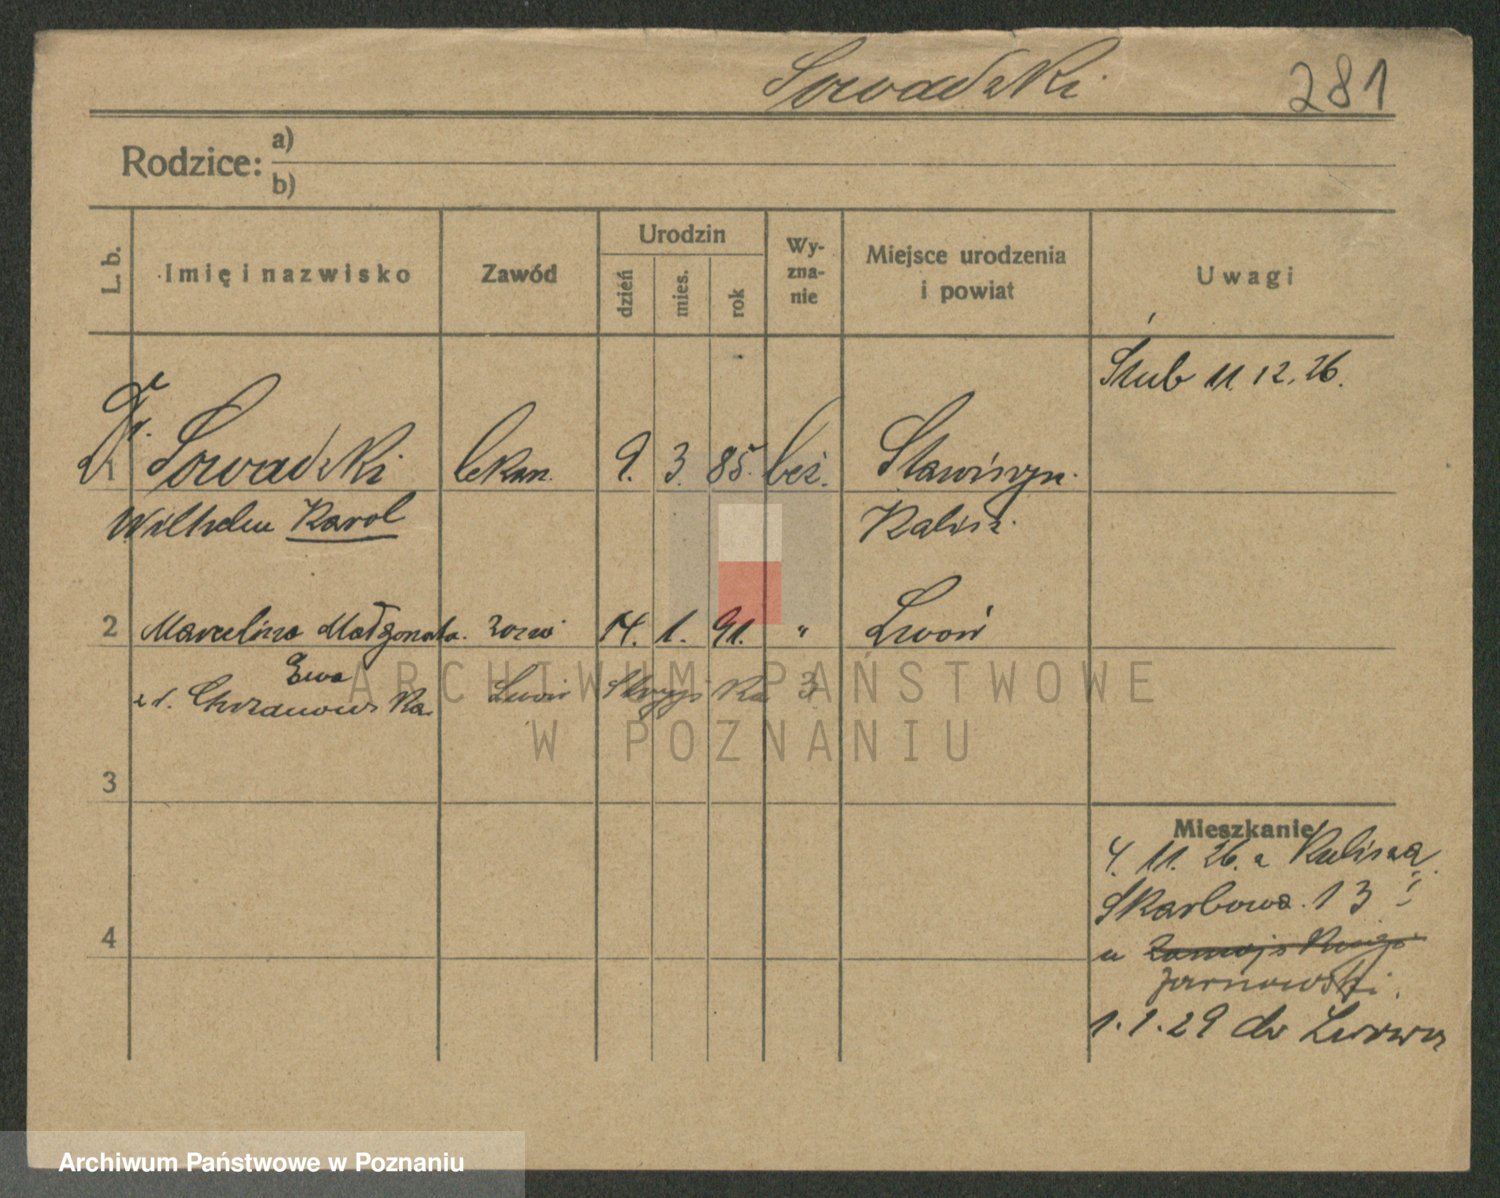 Sowadski 281
Rodzice: a)
b)
L. b. Imię i nazwisko Zawód Urodzin dzień mies. rok Wy-zna-nie Miejsce urodzenia i powiat Uwagi
Ślub 11.12.26.
Dr. 1 Sowadski lekarz. 9. 3. 85. beż. Stawiszyn.
Wilhelm Karol Kalisz.
2 Marcelina Małgorzata. 14. 1. 91. " Lwów
Ewa
z d. Chrzanowska. Lwów 3
3
Mieszkanie
4. 11. 26. z Kalisza
Skarbowa. 13 I
4
u
Jarnowski.
1.1.29 do Lwowa
ARCHIWUM PAŃSTWOWE
W POZNANIU
Archiwum Państwowe w Poznaniu